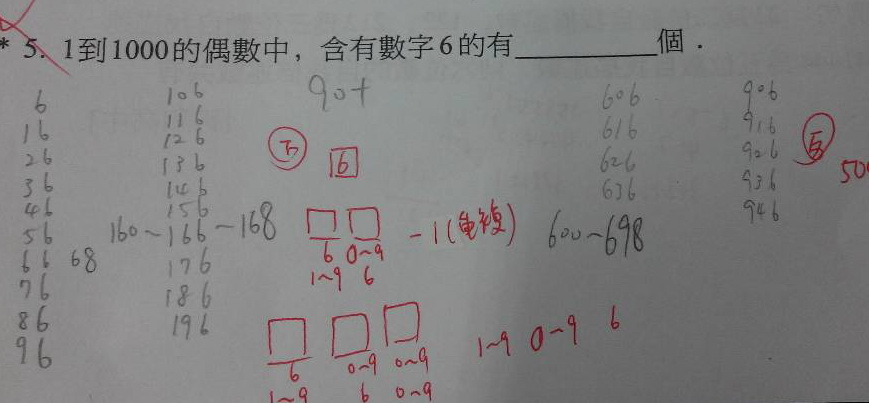 * 5. 1到1000的偶數中，含有數字6的有____________個．
90+
6
16
26
36
46
56
66 68
76
86
96
106
116
126
136
146
156
160~166~168
176
186
196
6
6 0~9
1~9 6
-1(重複)
6 0~9 0~9
1~9 6 0~9
1~9 0~9 6
606
616
626
636
600~698
906
916
926
936
946
500